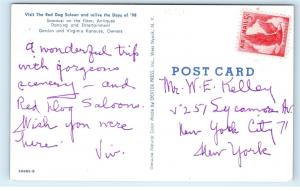 Visit The Red Dog Saloon and relive the Days of '98
Sawdust on the floor, Antiques
Dancing and Entertainment
Gordon and Virginia Kanouse, Owners
A wonderful trip
with gorgeous
scenery - and
Red Dog Saloons.
Wish you were
here.
Viv.
POST CARD
Mr. W. E. Kelley
251 Sycamore Av.
New York City 71
New York
DEXTER PRESS, Inc. West Nyack, N.Y.